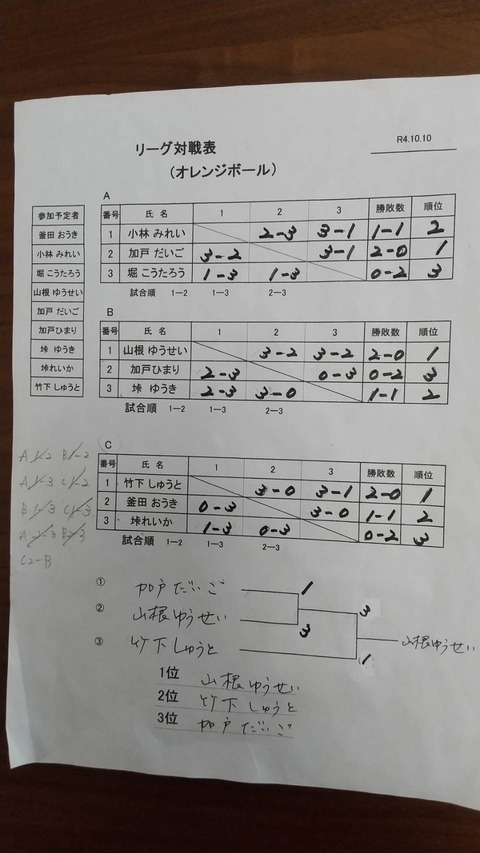 R4.10.10
リーグ対戦表
(オレンジボール)
参加予定者
釜田 おうき
小林 みれい
堀 こうたろう
山根 ゆうせい
加戸 だいご
加戸ひまり
垰 ゆうき
垰れいか
竹下 しゅうと
A
番号 氏 名 1 2 3 勝敗数 順位
1 小林 みれい 2-3 3-1 1-1 2
2 加戸 だいご 3-2 3-1 2-0 1
3 堀 こうたろう 1-3 1-3 0-2 3
試合順 1-2 1-3 2-3
B
番号 氏 名 1 2 3 勝敗数 順位
1 山根 ゆうせい 3-2 3-2 2-0 1
2 加戸ひまり 2-3 0-3 0-2 3
3 垰 ゆうき 2-3 3-0 1-1 2
試合順 1-2 1-3 2-3
C
番号 氏 名 1 2 3 勝敗数 順位
1 竹下 しゅうと 3-0 3-1 2-0 1
2 釜田 おうき 0-3 3-0 1-1 2
3 垰れいか 1-3 0-3 0-2 3
試合順 1-2 1-3 2-3
A 1-2 B 1-2
A 1-3 C 1-2
B 1-3 C 1-3
A 2-3 B 2-3
① 加戸 だいご 1
② 山根 ゆうせい 3 3
③ 竹下 しゅうと 1
山根 ゆうせい
1位 山根 ゆうせい
2位 竹下 しゅうと
3位 加戸 だいご